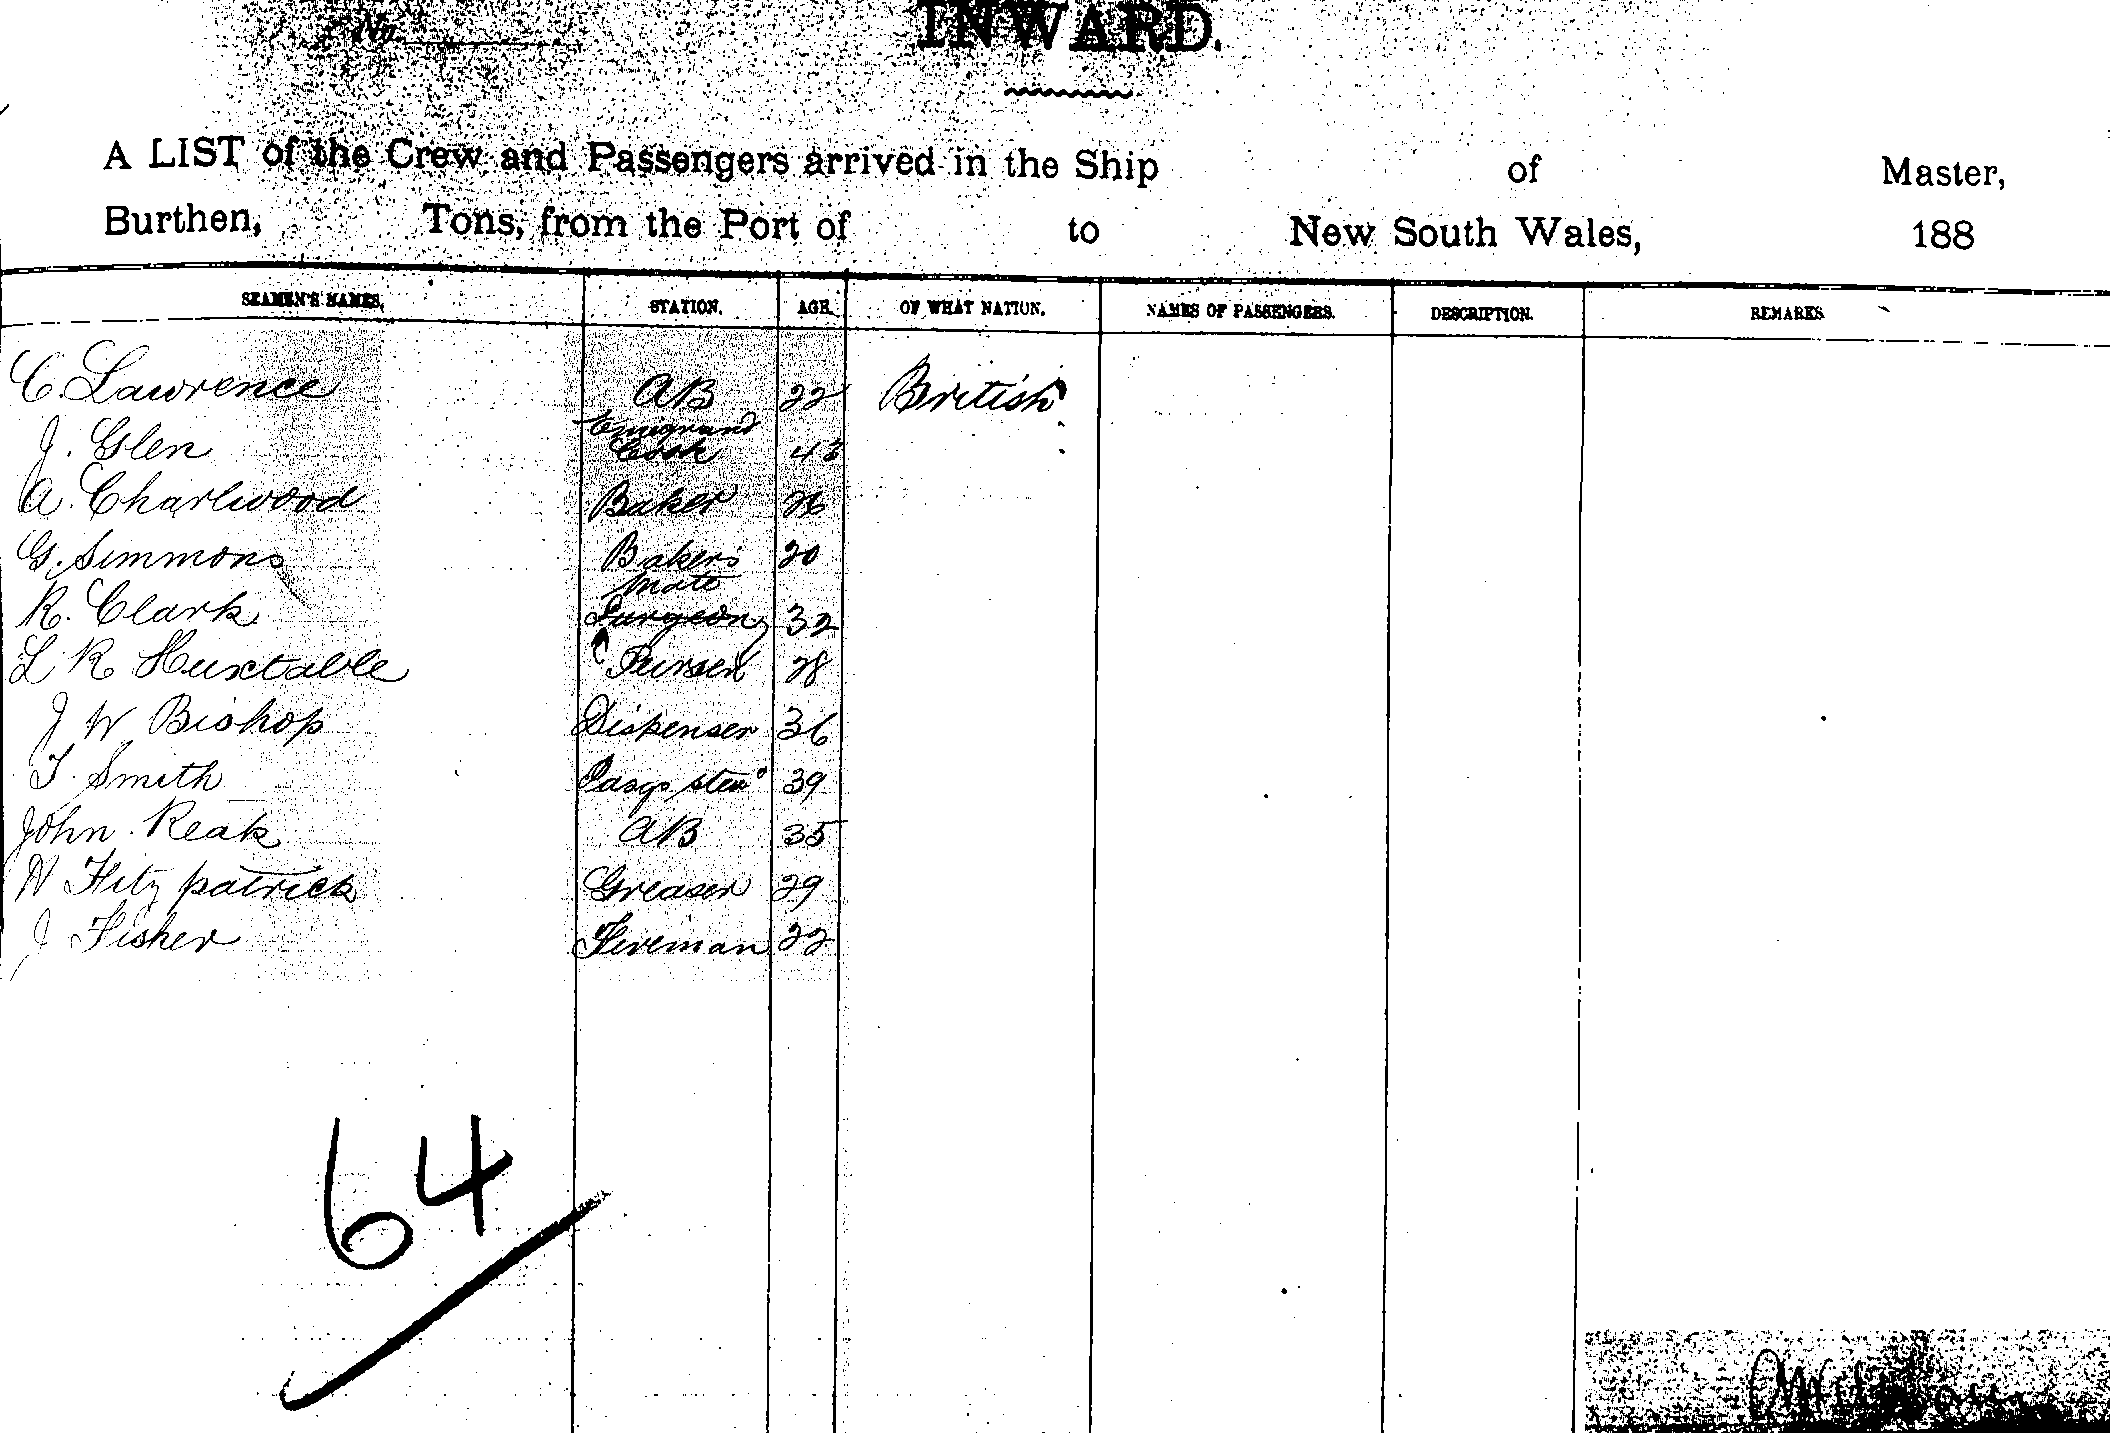 No
INWARD.
A LIST of the Crew and Passengers arrived in the Ship of Master,
Burthen, Tons, from the Port of to New South Wales, 188
SEAMEN'S NAMES. STATION. AGE. OF WHAT NATION. NAMES OF PASSENGERS. DESCRIPTION. REMARKS
C. Lawrence AB 22 British
J. Glen Emigrand Cook 43
A. Charlwood Baker 26
G. Simmons Baker's Mate 20
R. Clark Surgeon 32
L R Huxtable Purser 28
J W Bishop Dispenser 36
T. Smith Pasgs stew 39
John Reak AB 35
W Fitz patrick Greaser 29
J Fisher Fireman 22
64